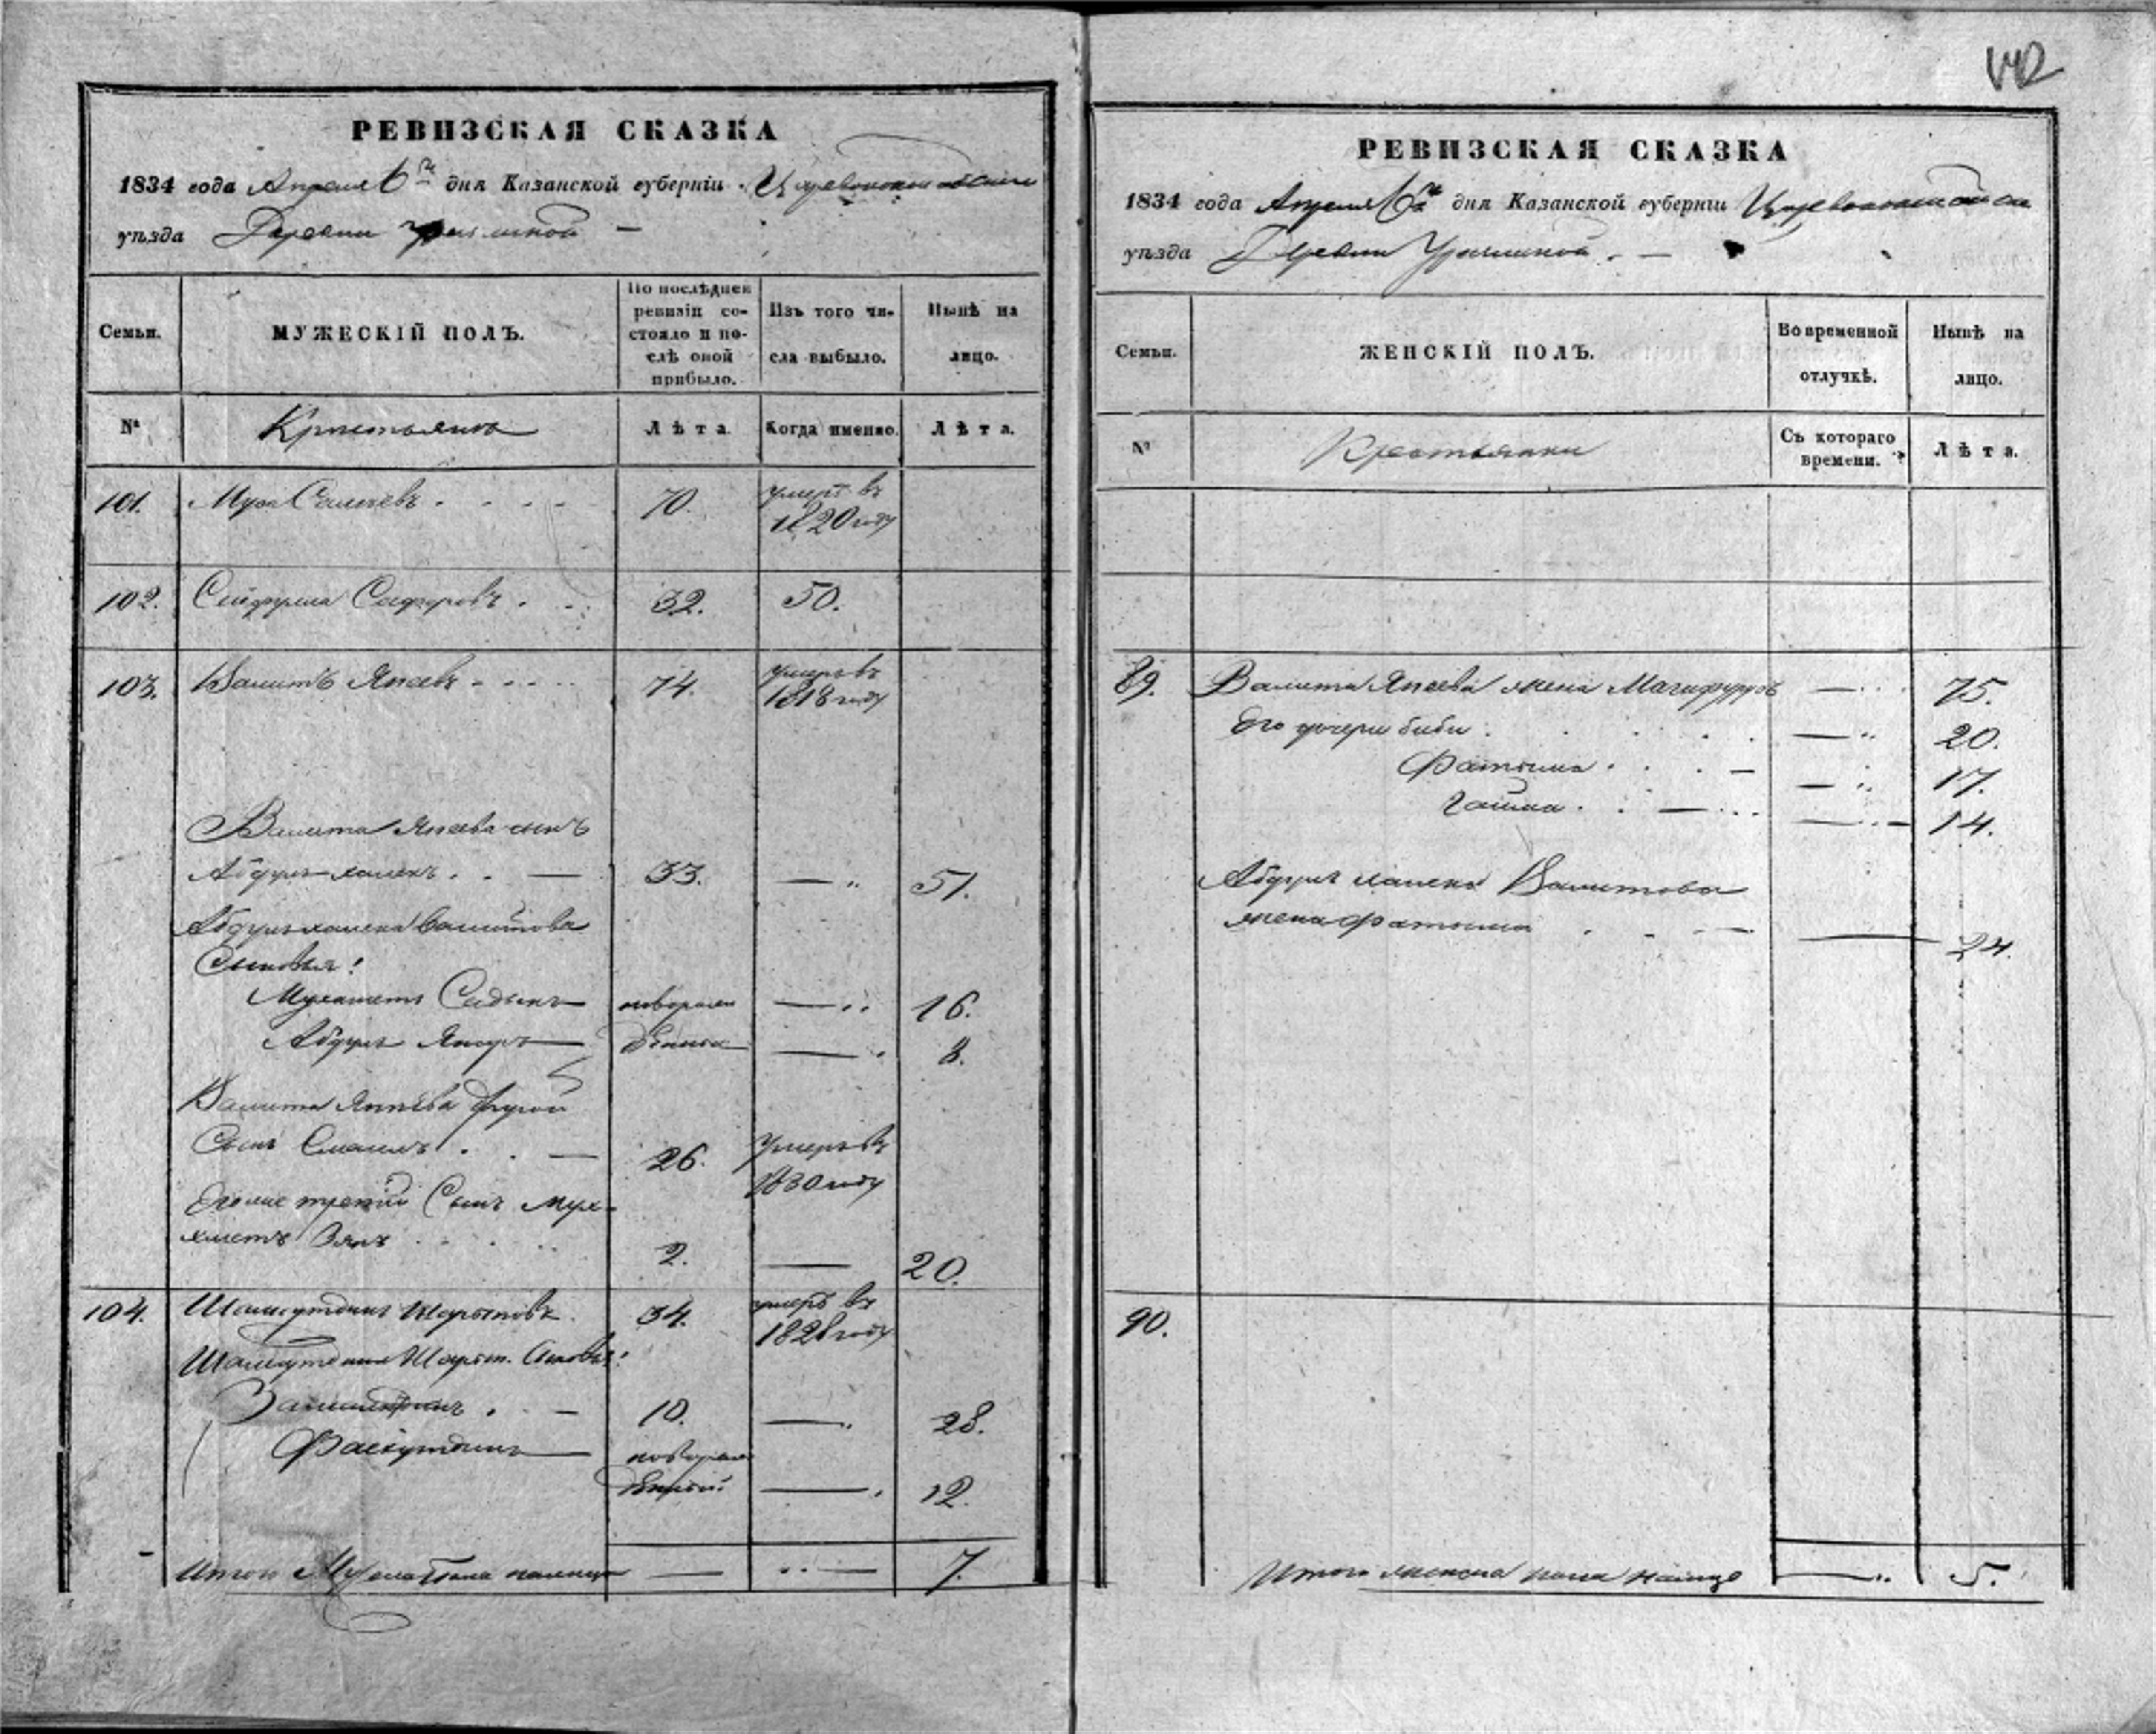 142
РЕВИЗСКАЯ СКАЗКА
1834 года Апреля 6го дня Казанской губерніи Царевококшайскаго
уѣзда Деревни
Семьи.
МУЖЕСКІЙ ПОЛЪ.
По послѣдней ревизіи со-
стояло и по-
слѣ оной
прибыло.
Изъ того чи-
сла выбыло.
Нынѣ на
лицо.
№
Крестьянъ
Лѣта.
Когда именно.
Лѣта.
101. Муса 70. умеръ въ
1820 году
102. Сейфулла 32. 50.
103. Валитъ Япеевъ 74. умеръ въ
1818 году
Валита Япеева сынъ
Абдулъ халекъ 33. — 51.
Абдулъ халека Валитова
Сыновья:
Мухаметъ Садыкъ новорож — 16.
Абдулъ денныя — 8.
Валита Япеева другой
Сынъ Смаилъ 26. умеръ въ
1830 году
Его же третій Сынъ Муха-
хметъ 2. — 20.
104. Шамсутдинъ Шарыповъ 34. умеръ въ
1828 году
Шамсутдина Шарып. Сыновья:
10. — 28.
новорож
денный — 12.
Итого Мужеска пола налицо — — 7.
РЕВИЗСКАЯ СКАЗКА
1834 года Апреля 6го дня Казанской губерніи Царевококшайскаго
уѣзда Деревни
Семьи.
ЖЕНСКІЙ ПОЛЪ.
Во временной
отлучкѣ.
Нынѣ на
лицо.
№
Крестьянки
Съ котораго
времени.
Лѣта.
89. Валита Япеева жена — 75.
Его дочери Биби — 20.
Фатыма — 17.
— 14.
Абдулъ халека Валитова
жена Фатыма — 24.
90.
Итого женска пола налицо — 5.